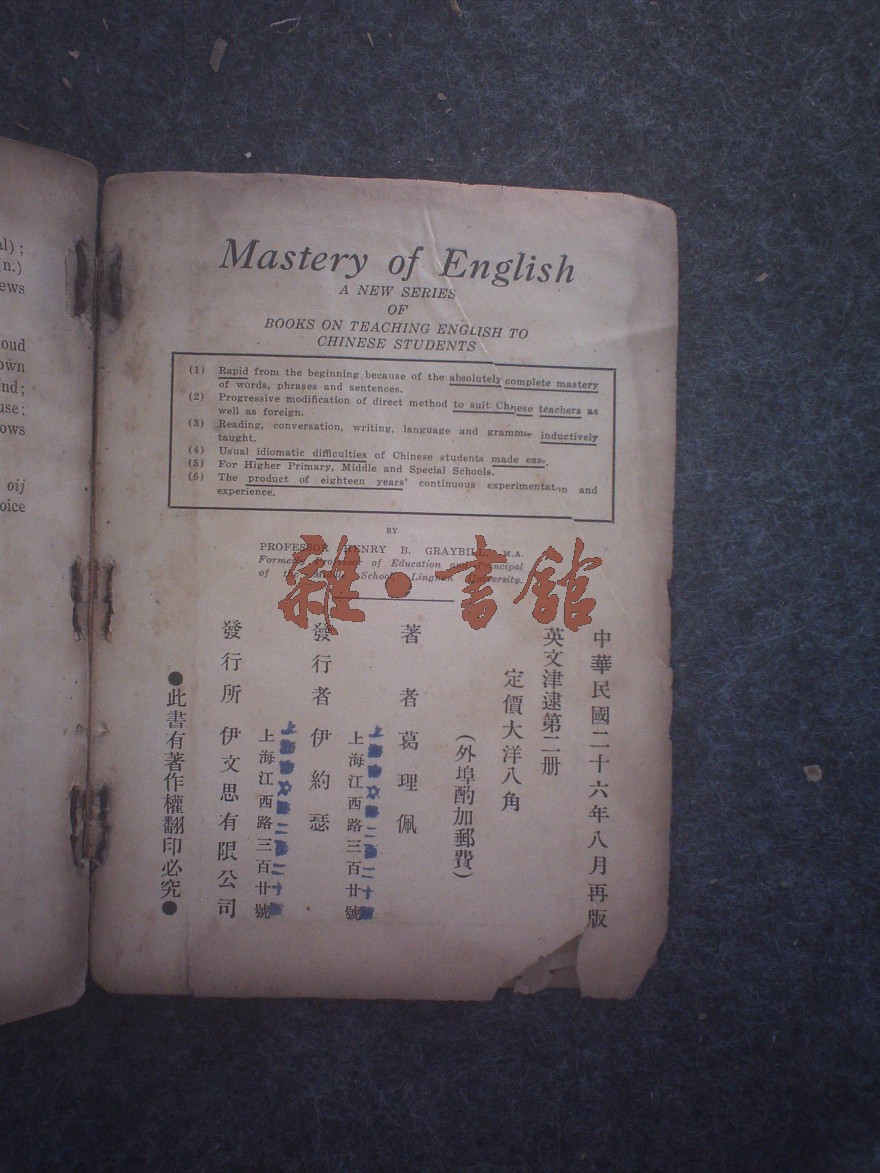 al);
n.)
ews
oud
own
nd;
use;
ows
oij
oice
Mastery of English
A NEW SERIES
OF
BOOKS ON TEACHING ENGLISH TO
CHINESE STUDENTS
(1) Rapid from the beginning because of the absolutely complete mastery
of words, phrases and sentences.
(2) Progressive modification of direct method to suit Chinese teachers as
well as foreign.
(3) Reading, conversation, writing, language and grammar inductively
taught.
(4) Usual idiomatic difficulties of Chinese students made easy.
(5) For Higher Primary, Middle and Special Schools.
(6) The product of eighteen years' continuous experimentation and
experience.
BY
PROFESSOR HENRY B. GRAYBILL, M.A.
Formerly Professor of Education and Principal
of the Middle School, Lingnan University.
雜·書館
中華民國二十六年八月再版
英文津逮第二册
定價大洋八角
(外埠酌加郵費)
著者葛理佩
上海江西路三百廿號
發行者伊約瑟
上海江西路三百廿號
發行所伊文思有限公司
●此書有著作權翻印必究●